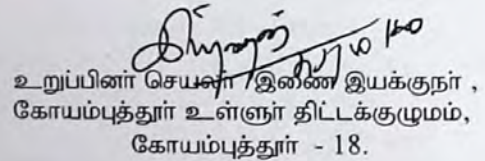 உறுப்பினர் செயலர் /இணை இயக்குநர் ,
கோயம்புத்தூர் உள்ளூர் திட்டக்குழுமம்,
கோயம்புத்தூர் - 18.